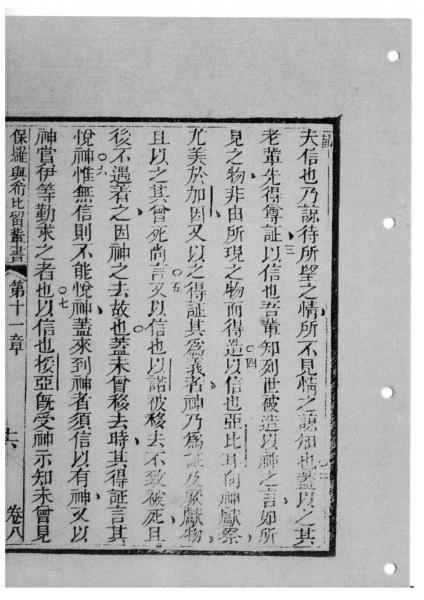 夫信也乃諒待所望之情所不見情之諒知也蓋以之其
老輩先得尊証以信也吾輩知列世被造以神之言如所
見之物非由所現之物而得造以信也亞比耳向神獻祭
尤美於加因又以之得証其爲義者神乃爲証及厥獻物
且以之其曾死尚言又以信也以諾被移去不致被死且
後不遇着之因神之去故也蓋未曾移去時其得証言其
悅神惟無信則不能悅神蓋來到神者須信以有神又以
神賞伊等勤求之者也以信也挼亞旣受神示知未曾見
保羅與希比留輩書 第十一章 六 卷八